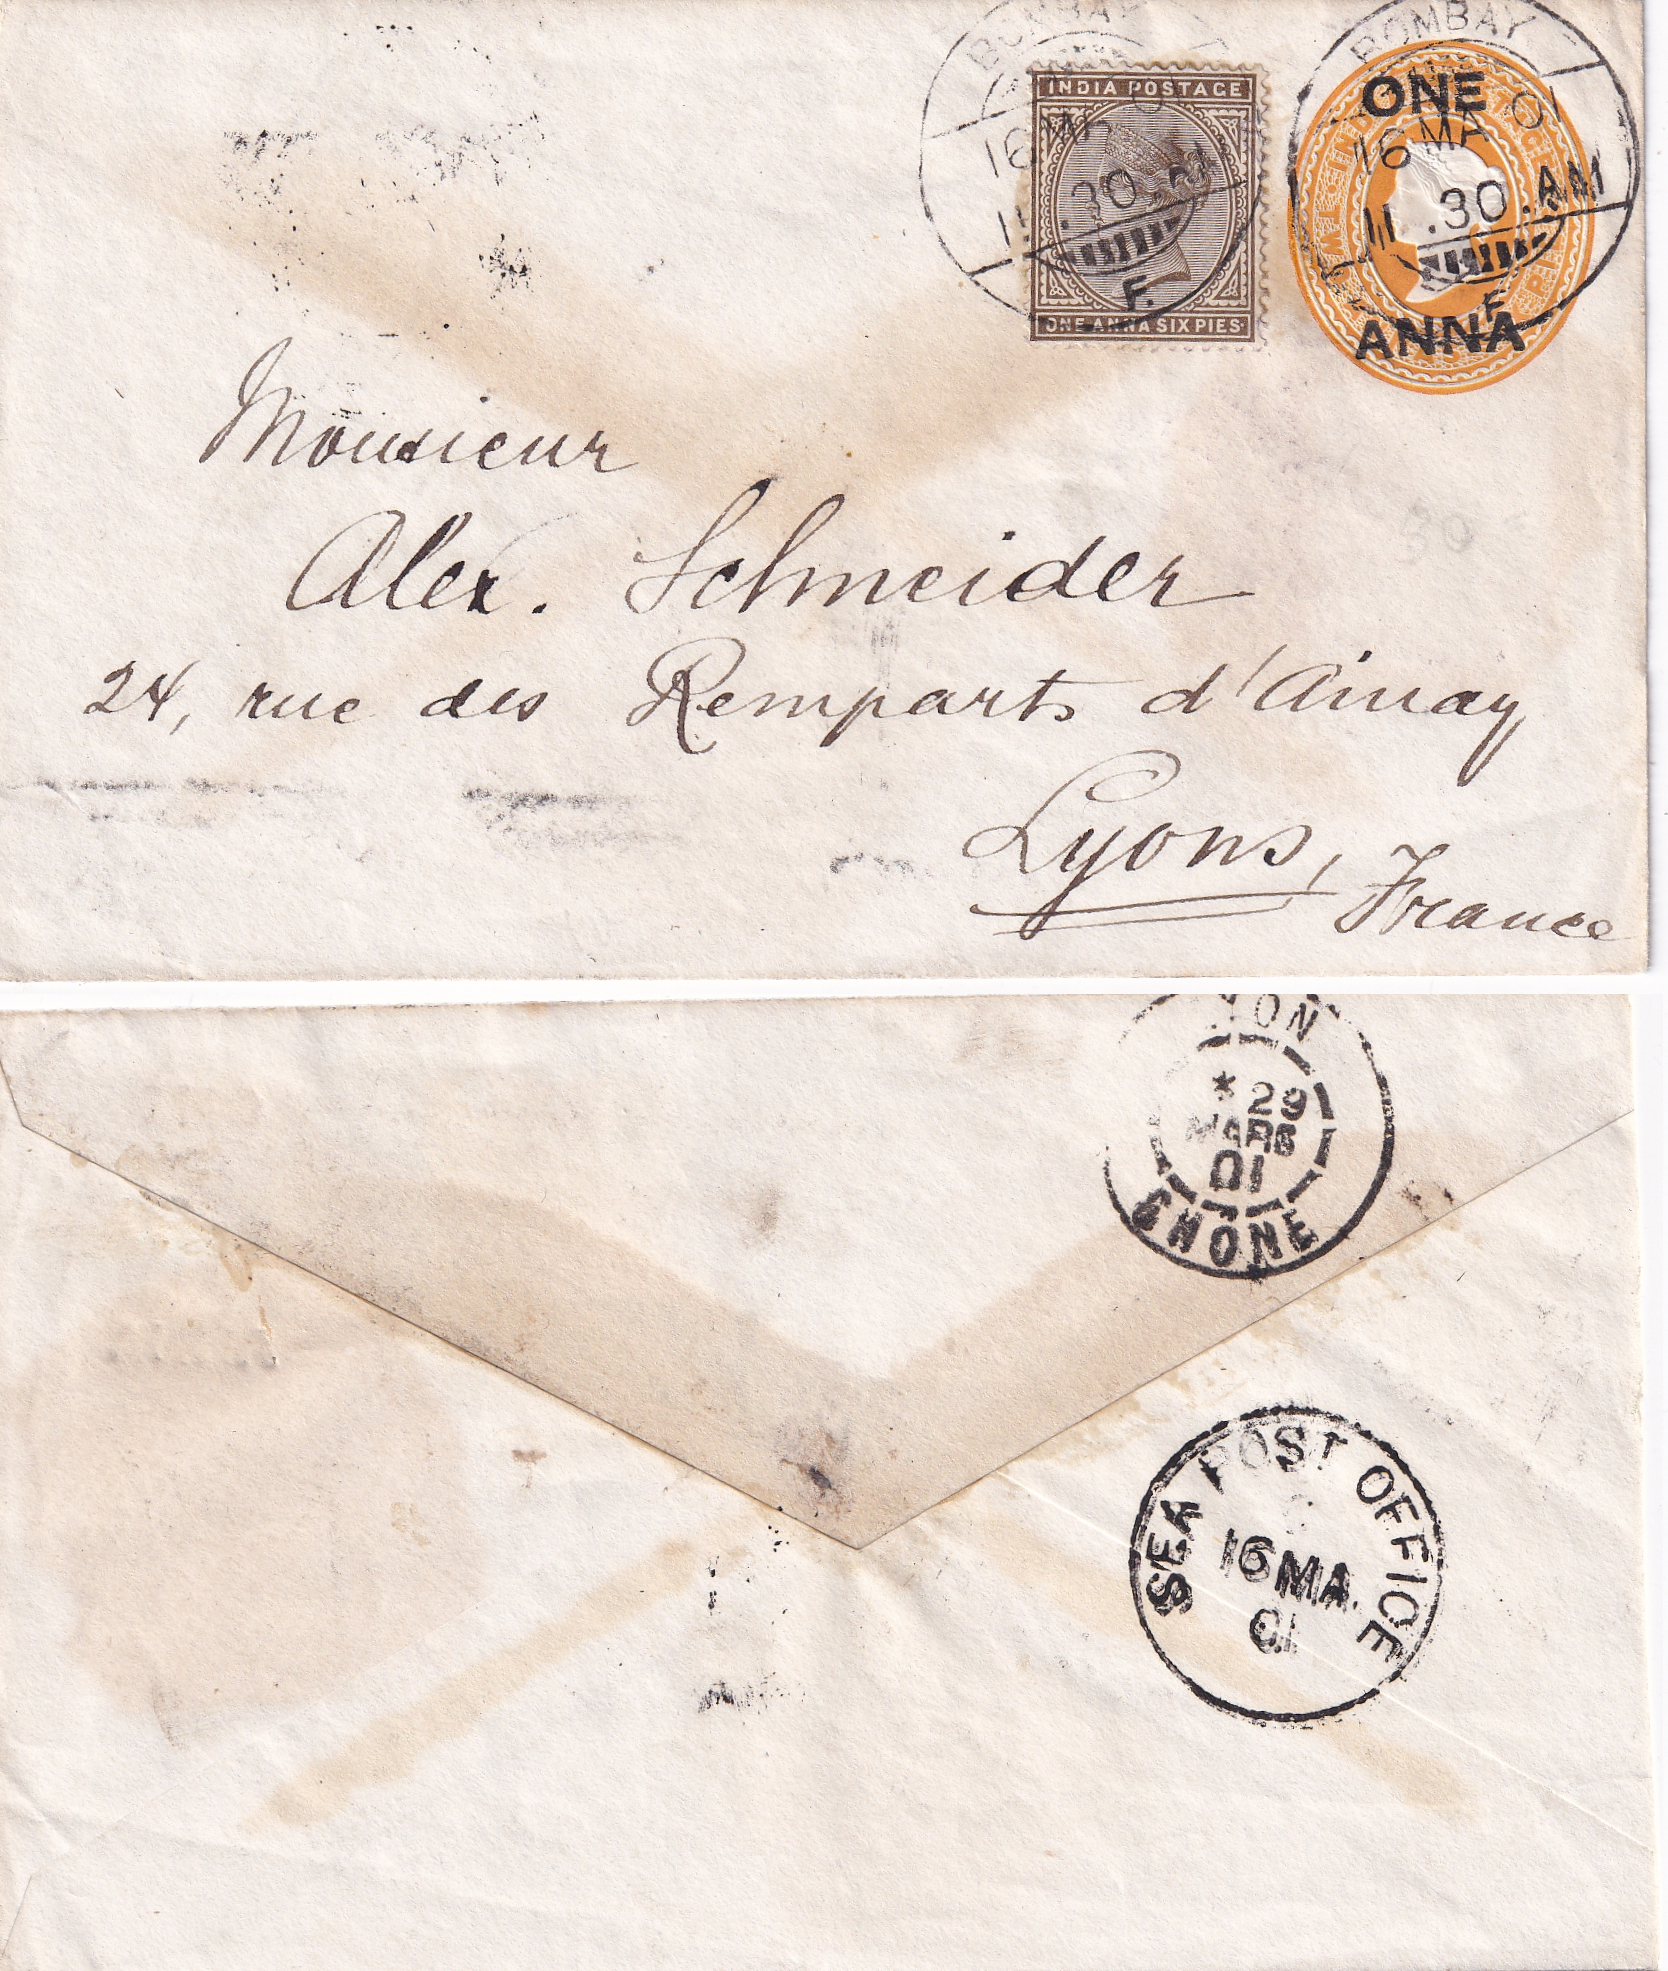 BOMBAY
16 MR 01
11.30 AM
F.
INDIA POSTAGE
ONE ANNA SIX PIES
BOMBAY
16 MR 01
11.30.AM
F.
ONE
ANNA
Monsieur
Alex. Schneider
24, rue des Remparts d'Ainay
Lyons,
France
LYON
* 29
MARS
01
RHONE
SEA POST OFFICE
16 MA.
01